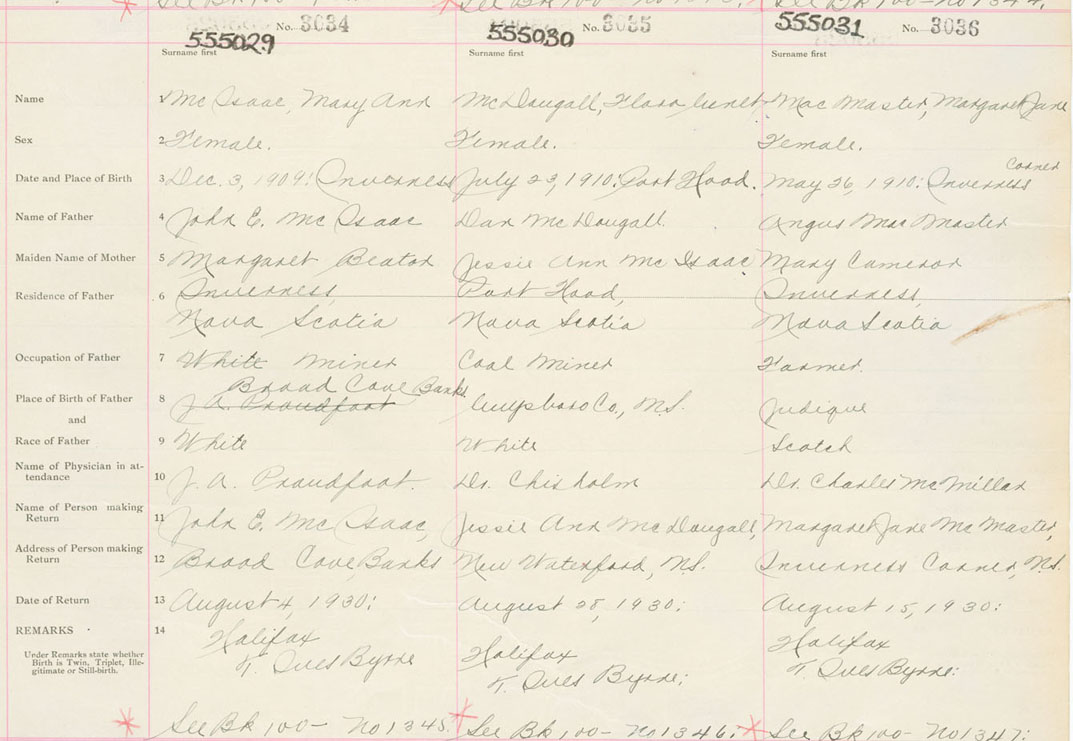 See Bk 100 - No 1344.
No. 3034 No. 3035 No. 3036
555029 555030 555031
Surname first Surname first Surname first
Name 1 Mc Isaac, Mary Ann McDougall, Flora Mac Master, Margaret Jane
Sex 2 Female. Female. Female.
Corner
Date and Place of Birth 3 Dec. 3, 1909: Inverness July 23, 1910: Port Hood. May 26, 1910: Inverness
Name of Father 4 John E. Mc Isaac Dan McDougall. Angus Mac Master
Maiden Name of Mother 5 Margaret Beaton Jessie Ann Mc Isaac Mary Cameron
Residence of Father 6 Inverness, Port Hood, Inverness,
Nova Scotia Nova Scotia Nova Scotia
Occupation of Father 7 White Miner Coal Miner Farmer.
Broad Cove Banks.
Place of Birth of Father 8 J. A. Proudfoot Guysboro Co, N.S. Judique
and
Race of Father 9 White White Scotch
Name of Physician in at-
tendance 10 J. A. Proudfoot. Dr. Chisholm Dr. Charles McMillan
Name of Person making
Return 11 John E. Mc Isaac, Jessie Ann McDougall, Margaret Jane Mc Master,
Address of Person making
Return 12 Broad Cove Banks New Waterford, N.S. Inverness Corner, N.S.
Date of Return 13 August 4, 1930: August 28, 1930: August 15, 1930:
REMARKS 14 Halifax Halifax Halifax
Under Remarks state whether
Birth is Twin, Triplet, Ille-
gitimate or Still-birth.
T. Ives Byrne T. Ives Byrne: T. Ives Byrne:
See Bk 100 - No 1345. See Bk 100 - No 1346: See Bk 100 - No 1347: